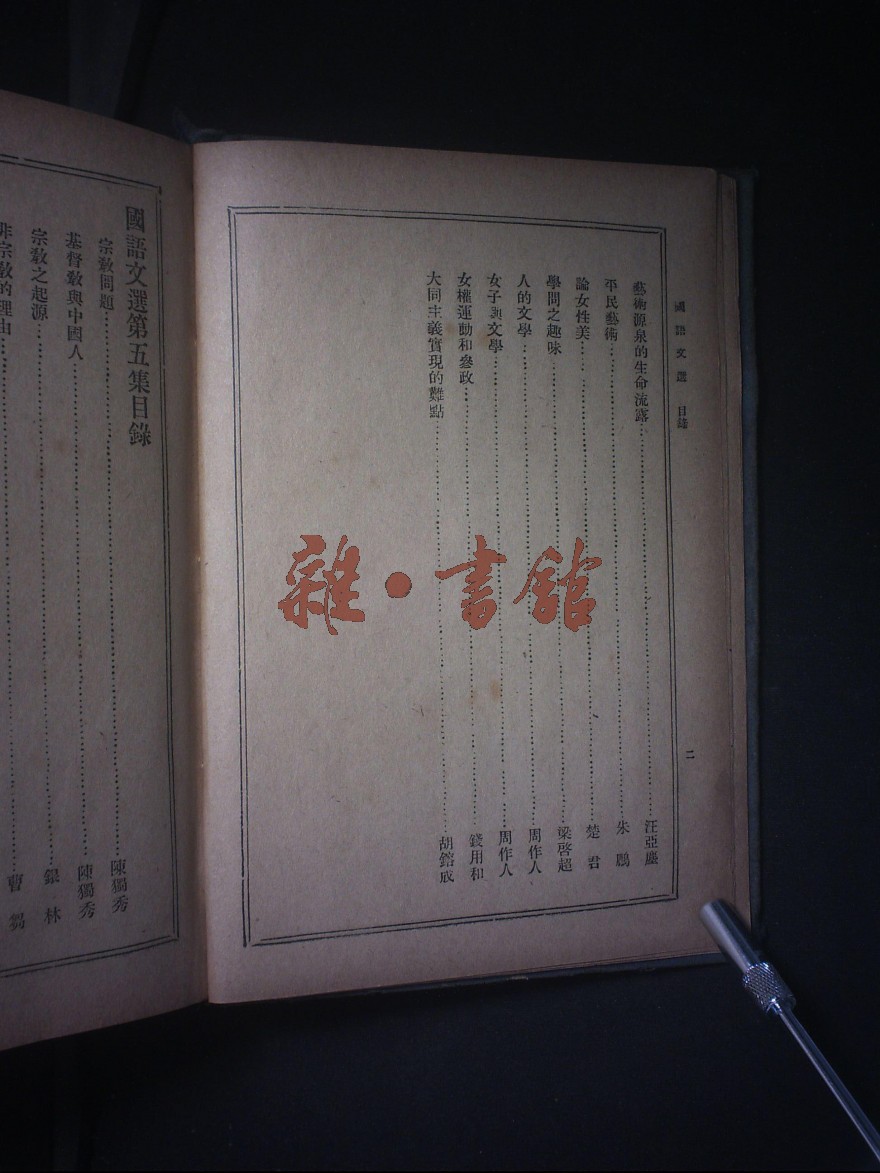 國語文選 目錄
二
藝術源泉的生命流露……汪亞塵
平民藝術……朱 鷗
論女性美……楚 君
學問之趣味……梁啓超
人的文學……周作人
女子與文學……周作人
女權運動和參政……錢用和
大同主義實現的難點……胡鎔成
國語文選第五集目錄
宗教問題……陳獨秀
基督教與中國人……陳獨秀
宗教之起源……銀 林
非宗教的理由……曹 芻
雜·書館